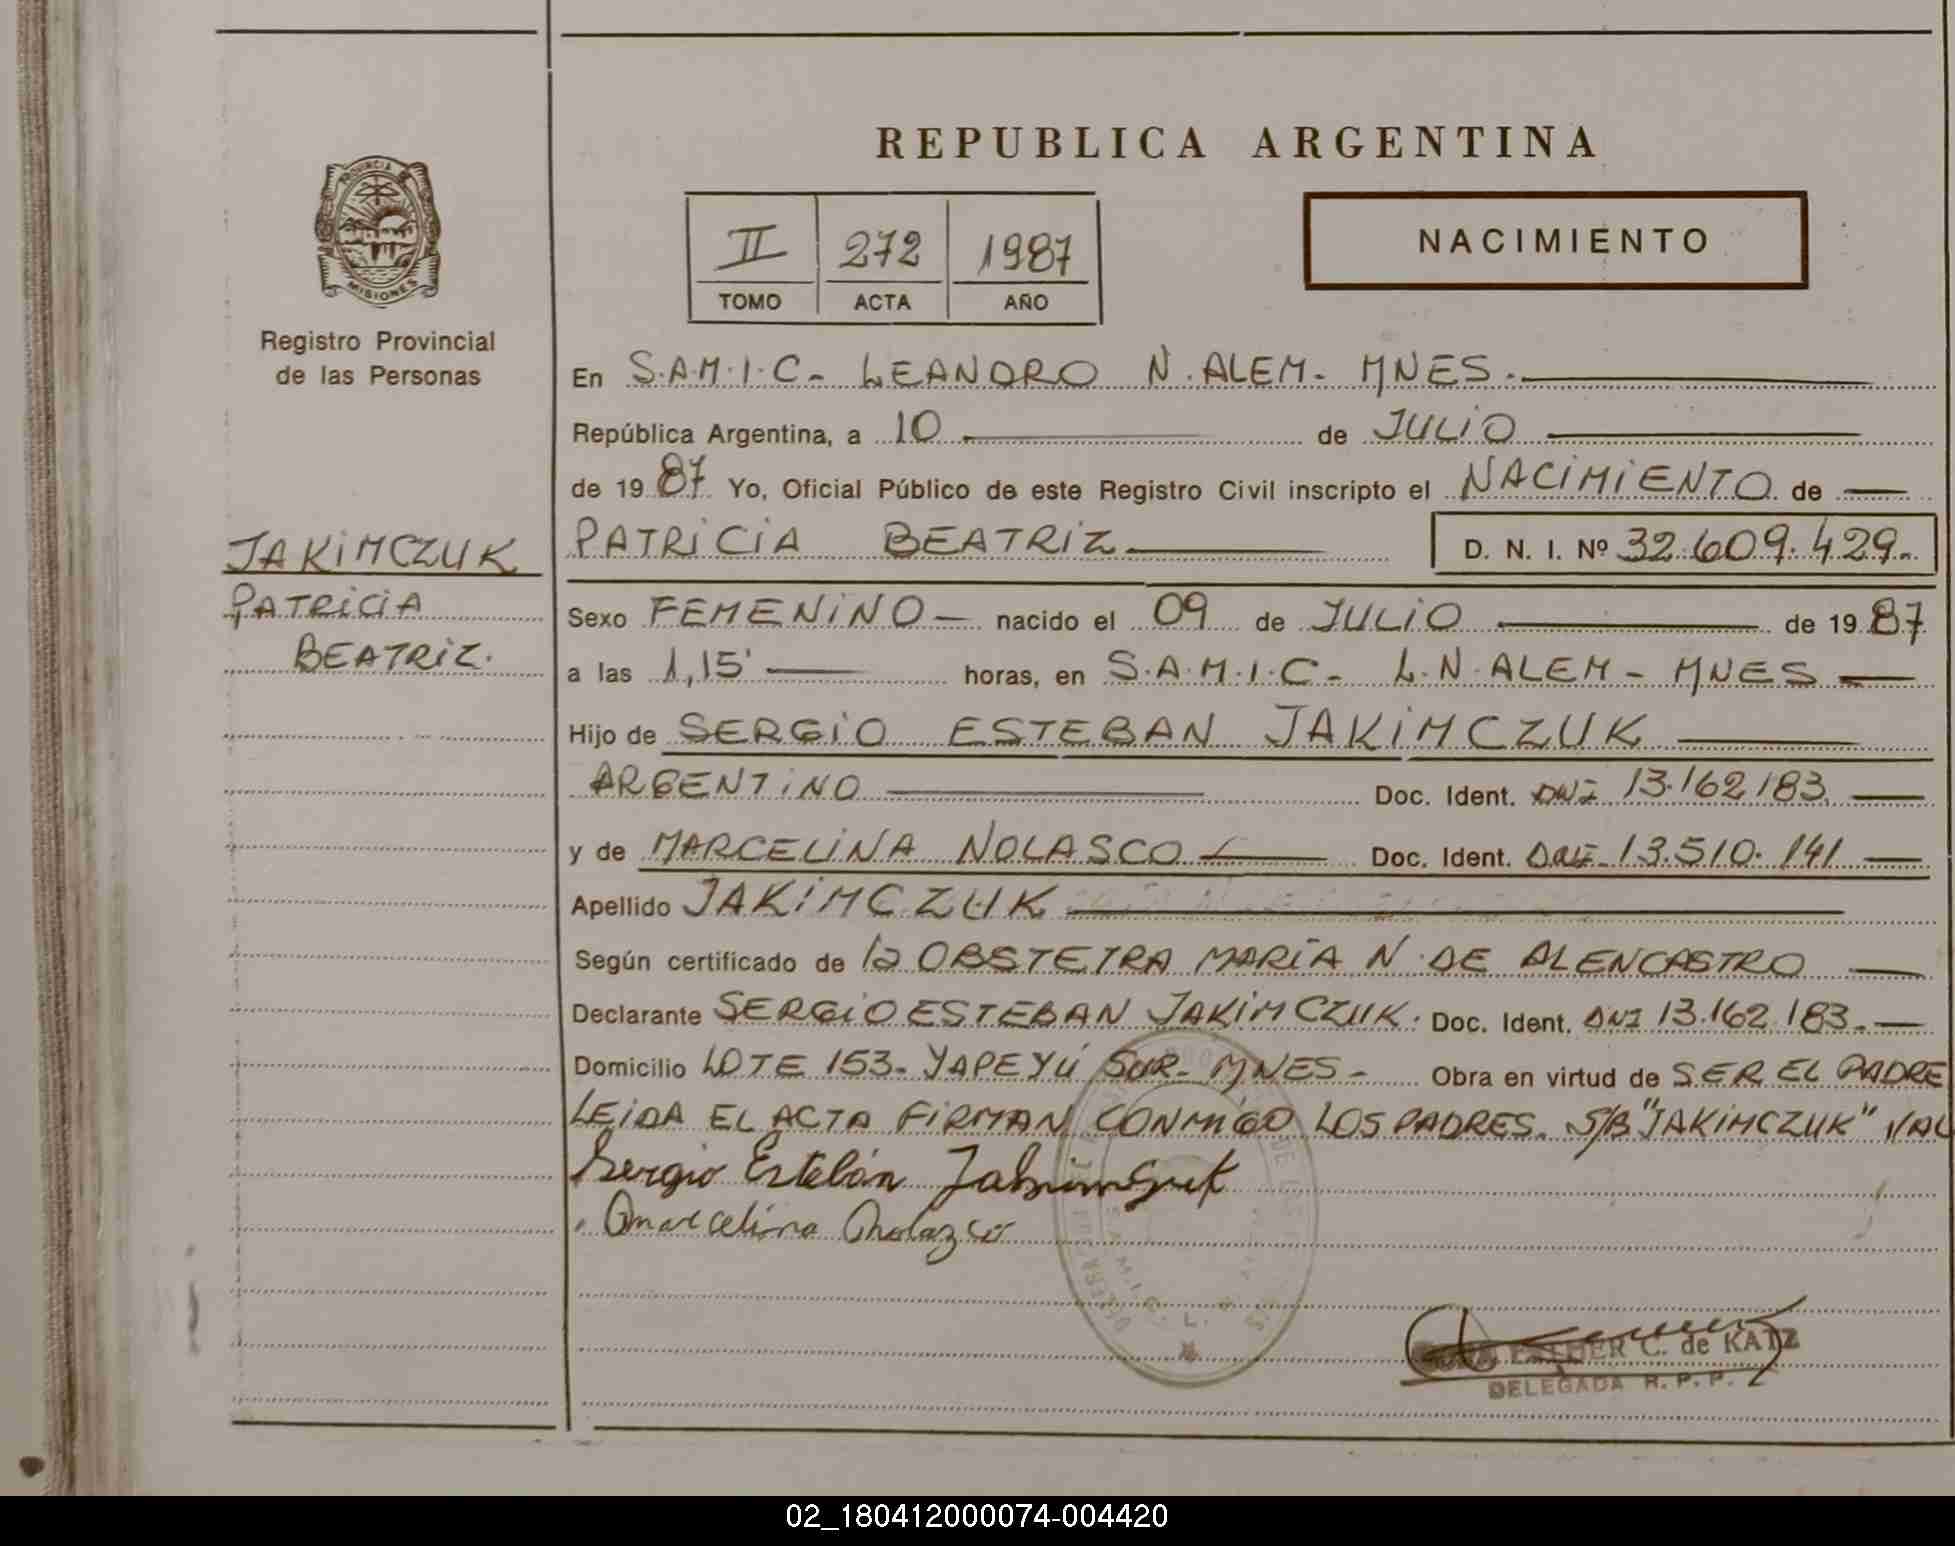 REPUBLICA ARGENTINA
PROVINCIA DE
MISIONES
Registro Provincial
de las Personas
II 272 1987
TOMO ACTA AÑO
NACIMIENTO
En S.A.M.I.C- LEANDRO N. ALEM- MNES.
República Argentina, a 10 de JULIO
de 1987 Yo, Oficial Público de este Registro Civil inscripto el NACIMIENTO de
JAKIMCZUK
PATRICIA
BEATRIZ.
PATRICIA BEATRIZ D. N. I. Nº 32.609.429.
Sexo FEMENINO nacido el 09 de JULIO de 1987
a las 1,15' horas, en S.A.M.I.C- L.N.ALEM - MNES
Hijo de SERGIO ESTEBAN JAKIMCZUK
ARGENTINO Doc. Ident. DNI 13.162.183.
y de MARCELINA NOLASCO Doc. Ident. 13.510.141
Apellido JAKIMCZUK
Según certificado de la OBSTETRA MARÍA N. DE ALENCASTRO
Declarante SERGIO ESTEBAN JAKIMCZUK. Doc. Ident. DNI 13.162.183.
Domicilio LOTE 153- YAPEYÚ SUR- MNES- Obra en virtud de SER EL PADRE
LEIDA EL ACTA FIRMAN CONMIGO LOS PADRES. S/B "JAKIMCZUK" VAL
Sergio Esteban Jakimczuk
Marcelina Nolazco
S.A.M.I.C. L.
ESTHER C. de KATZ
DELEGADA R. P. P.
02_180412000074-004420